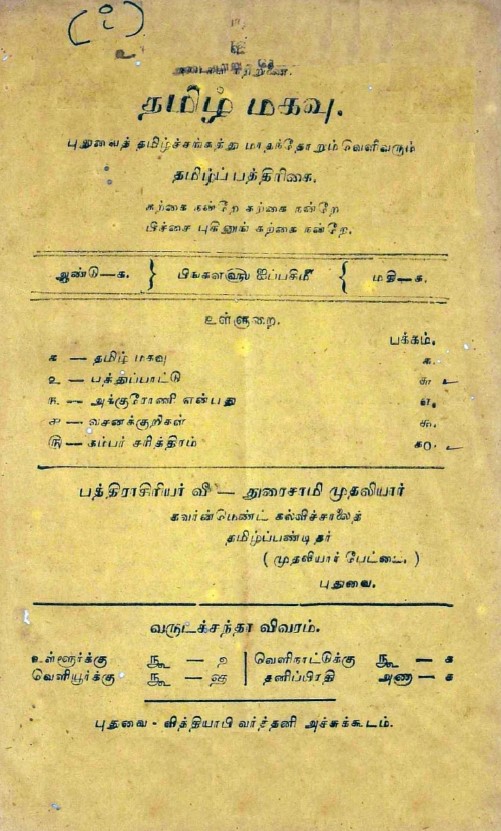 (உ)
உ
தமிழ் மகவு.
புதுவைத் தமிழ்ச்சங்கத்து மாதந்தோறும் வெளிவரும்
தமிழ்ப்பத்திரிகை.
கற்கை நன்றே கற்கை நன்றே
பிச்சை புகினுங் கற்கை நன்றே.
ஆண்டு—க. } பிங்களஹு ஐப்பசிமீ { மதி—க.
உள்ளுறை.
பக்கம்.
க — தமிழ் மகவு க.
உ — பத்துப்பாட்டு ௪
௩ — அக்குரோணி என்பது எ.
௪ — வசனக்குறிகள் அ.
௫ — கம்பர் சரித்திரம் க௦.
பத்திராசிரியர் வீ — துரைசாமி முதலியார்
கவர்ன்மெண்ட் கல்விச்சாலைத்
தமிழ்ப்பண்டிதர்
(முதலியார் பேட்டை.)
புதுவை.
வருடச்சந்தா விவரம்.
உள்ளூர்க்கு ரூ — | வெளிநாட்டுக்கு ரூ — ௩
வெளியூர்க்கு ரூ — | தனிப்பிரதி அணா — ௪
புதுவை - வித்தியாபி வர்த்தனி அச்சுக்கூடம்.